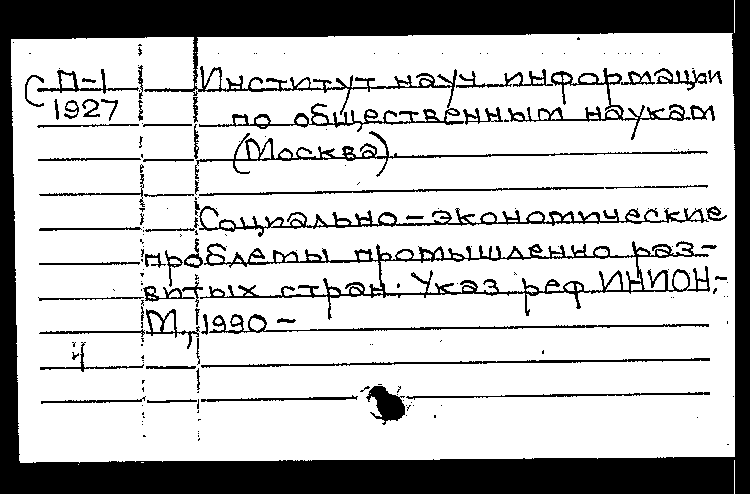 С П-1
1927
Институт науч информации
по общественным наукам
(Москва).
Социально-экономические
проблемы промышленно раз-
витых стран: Указ реф ИНИОН,-
М., 1990 -
ч